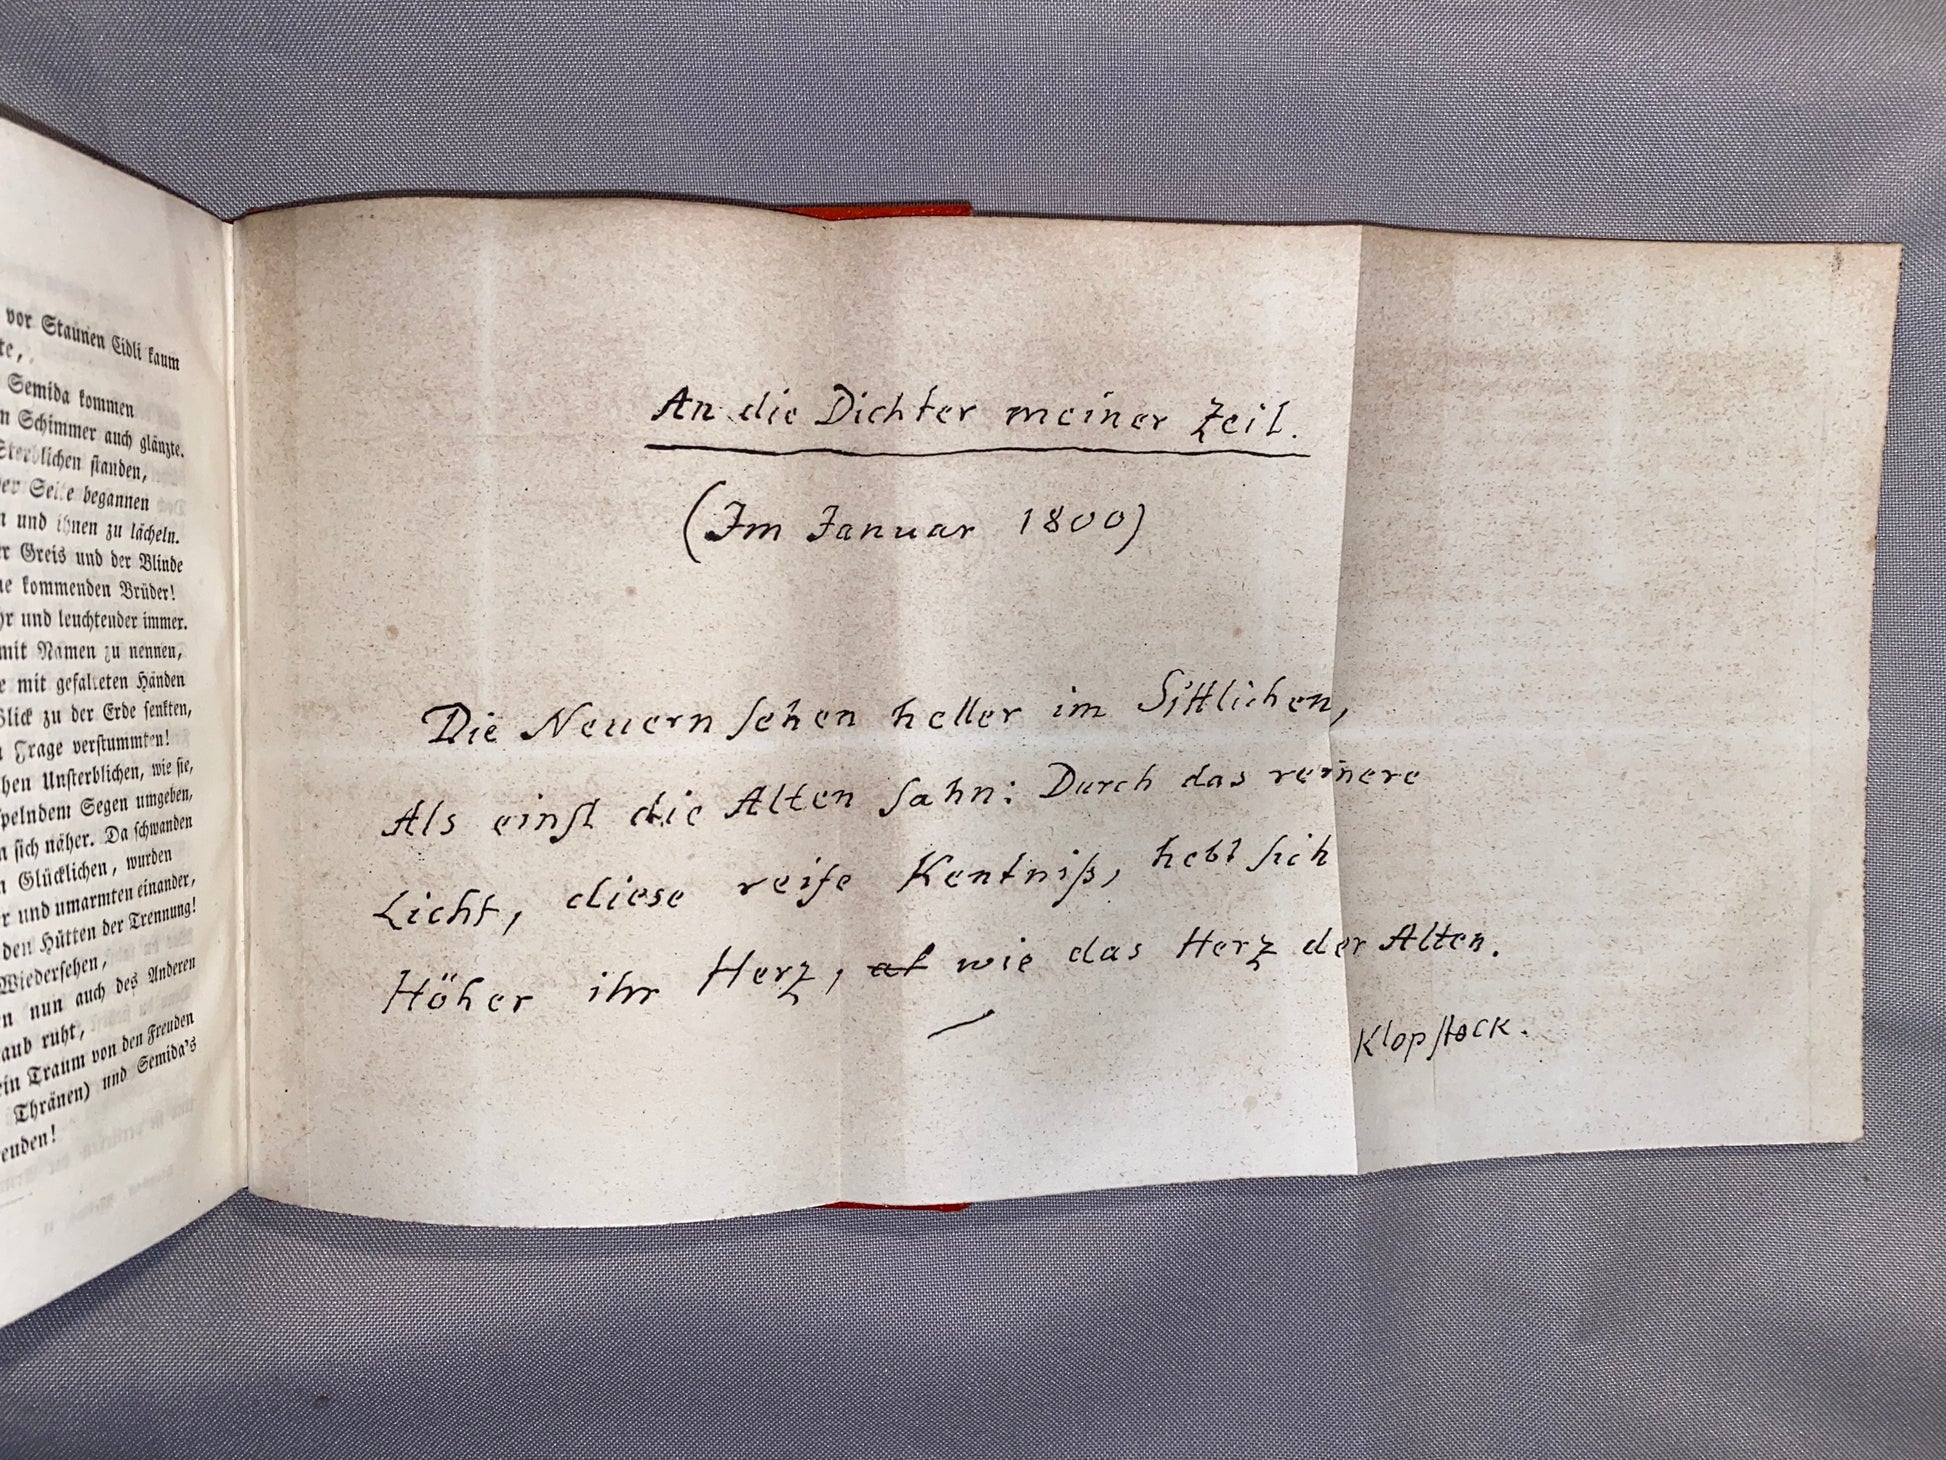 vor Staunen Cidli kaum
te,
Semida kommen
n Schimmer auch glänzte.
Sterblichen ſtanden,
der Seite begannen
n und ihnen zu lächeln.
er Greis und der Blinde
ne kommenden Brüder!
hr und leuchtender immer.
mit Namen zu nennen,
e mit gefalteten Händen
Blick zu der Erde ſenkten,
n Frage verſtummten!
hen Unſterblichen, wie ſie,
ſpelndem Segen umgeben,
n ſich näher. Da ſchwanden
n Glücklichen, wurden
er und umarmten einander,
den Hütten der Trennung!
Wiederſehen,
en nun auch des Anderen
aub ruht,
ein Traum von den Freuden
Thränen) und Semida's
enden!
An die Dichter meiner Zeit.
(Im Januar 1800)
Die Neuern ſehen heller im Sittlichen,
Als einſt die Alten ſahn: Durch das reinere
Licht, diese reife Kentniß, hebt ſich
Höher ihr Herz, al wie das Herz der Alten.
Klopſtock.